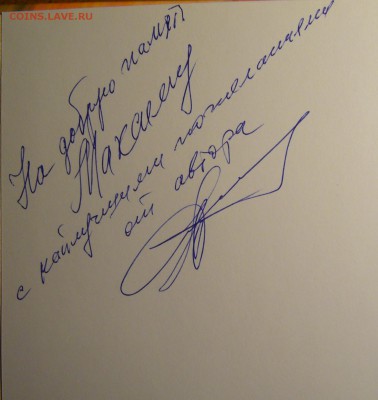 COINS.LAVE.RU
На добрую память
Максиму
с наилучшими пожеланиями
от автора